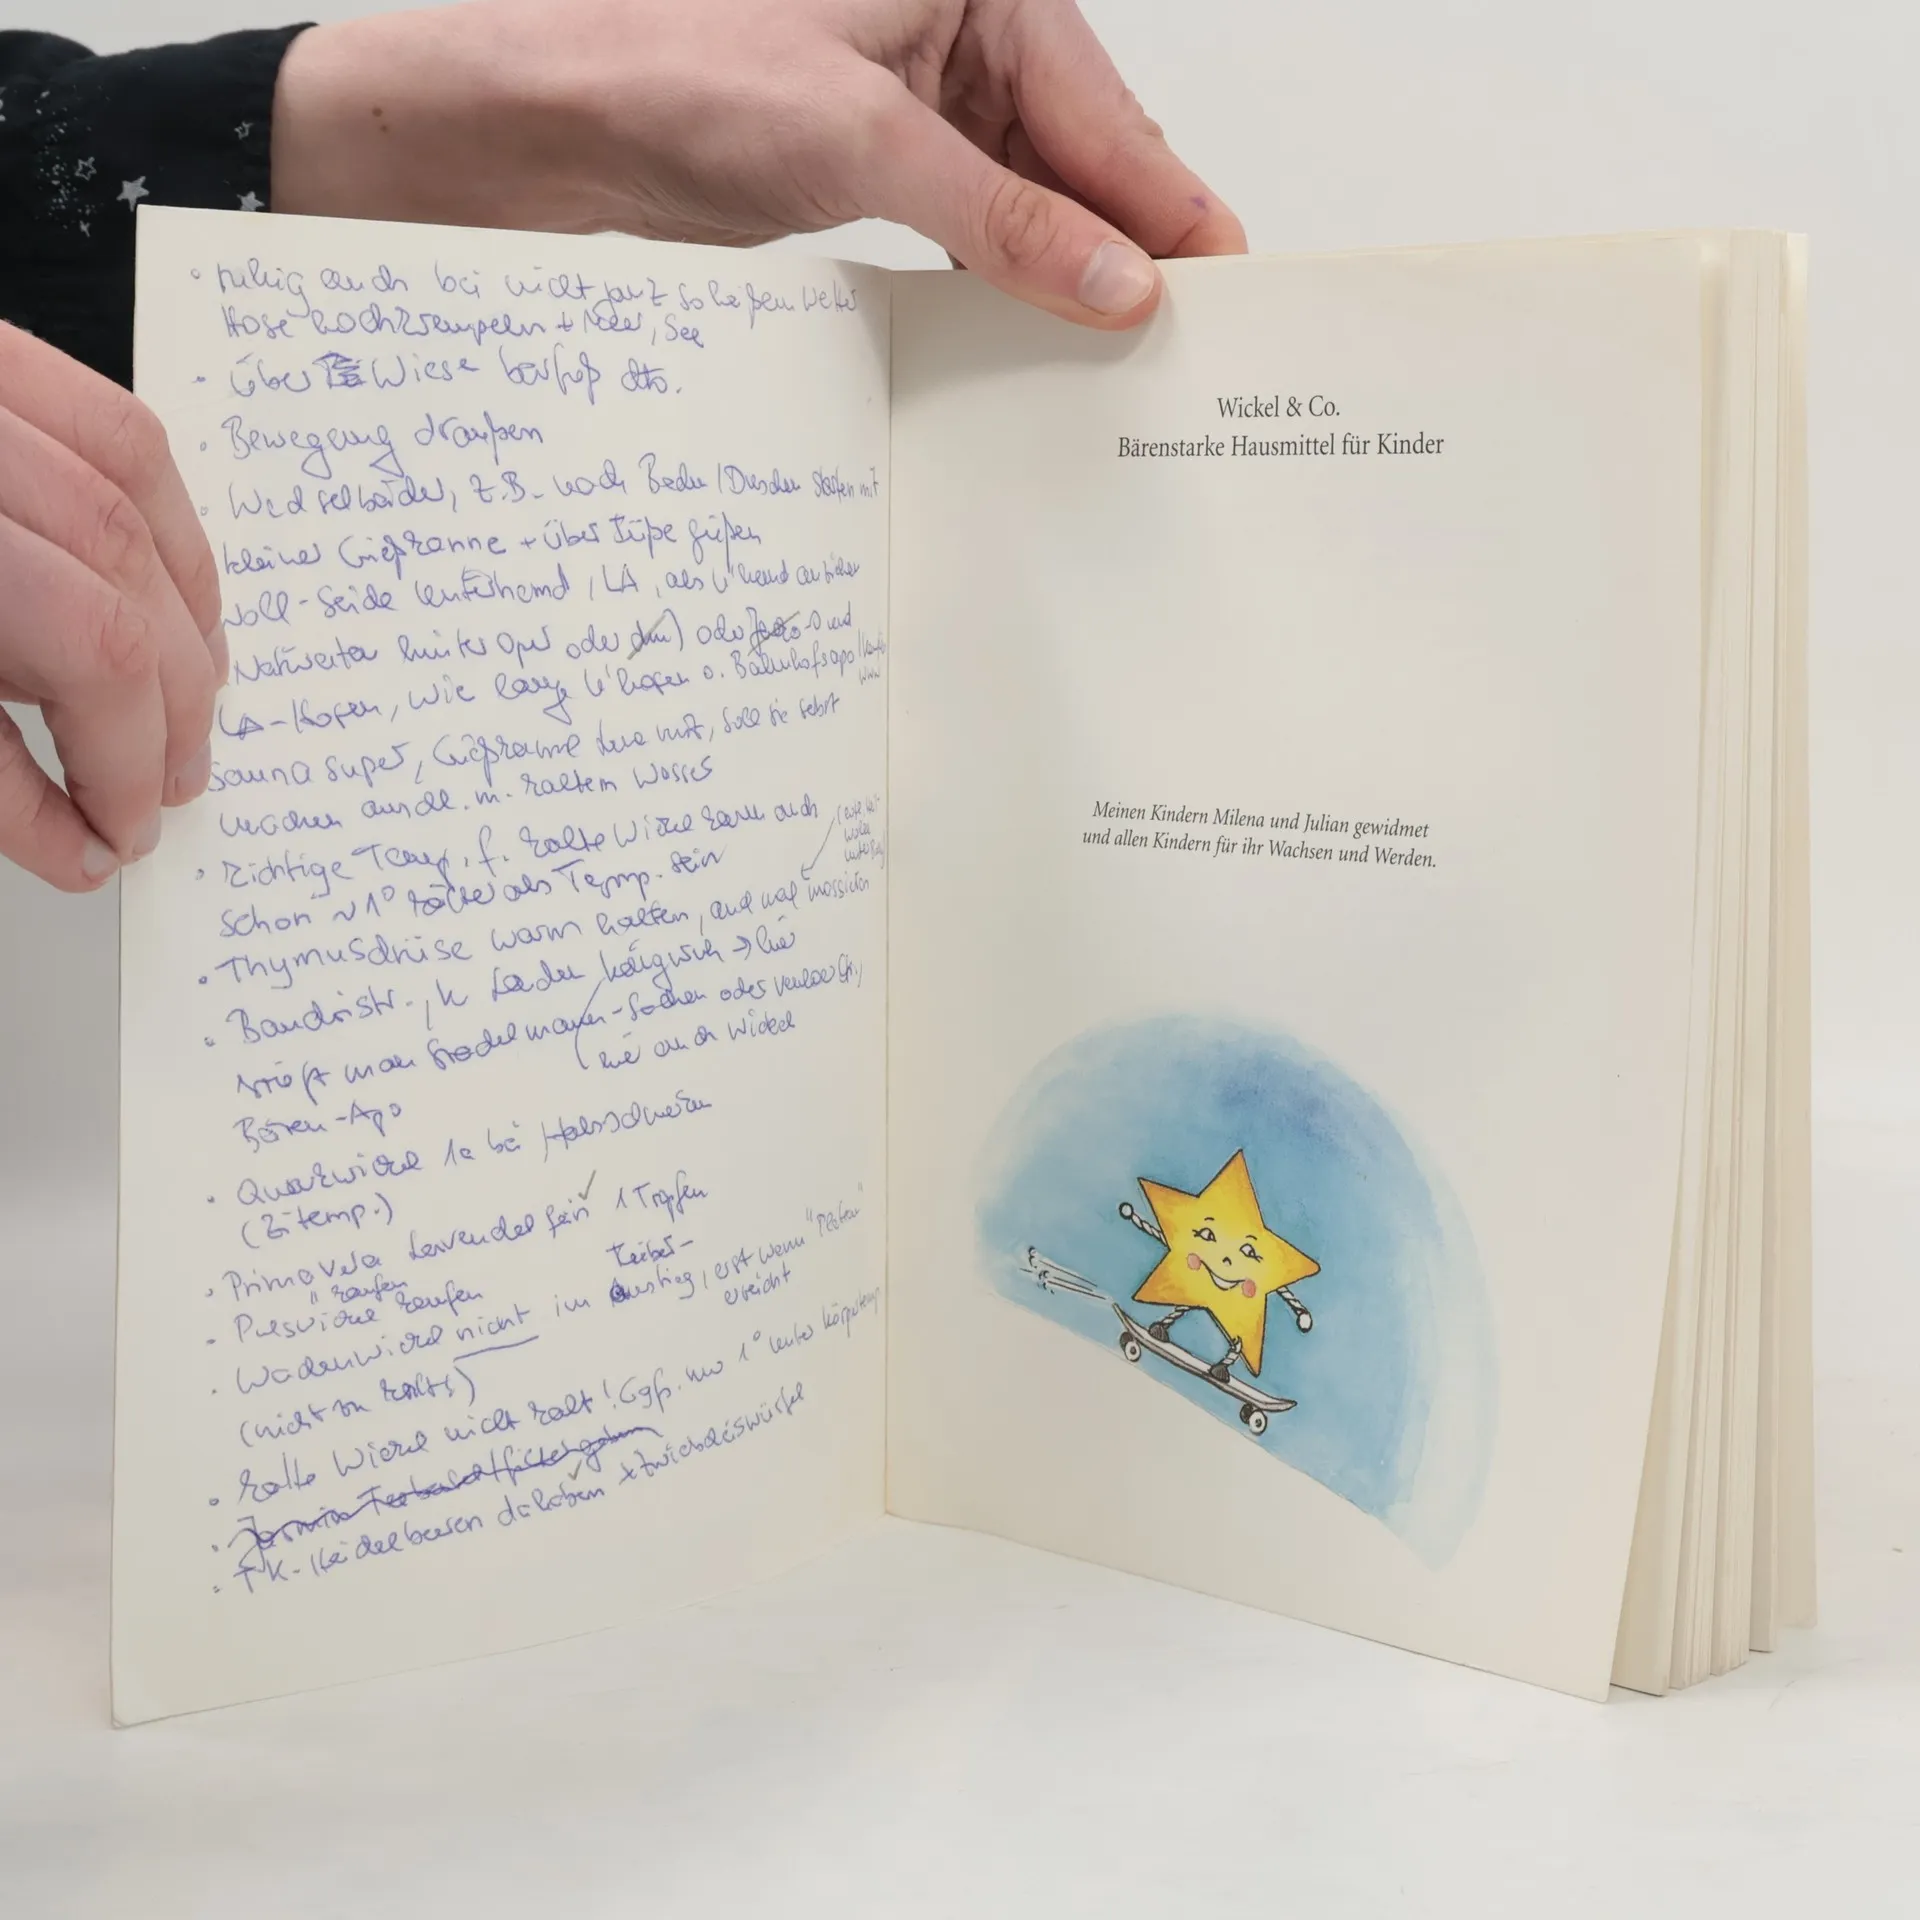 ruhig auch bei nicht ganz so heißem Wetter
Hose hochkrempeln + Meer, See
über Wiese barfuß dto.
Bewegung draußen
Wechselbäder, z.B. nach Baden/Duschen starten mit
kleiner Gießkanne + über Füße gießen
Woll-Seide Unterhemd, LA, als U'hemd anziehen
hinter Oper oder dm) oder und
LA-Hosen, wie lange U'hosen o. Bahnhofsapo
Sauna super, Gießkanne, soll sie selbst
machen m. kaltem Wasser
Richtige Temp. f. kalte Wickel kann auch
schon ~1° kälter als Temp. sein
Thymusdrüse warm halten, und mal massieren
Baaderstr., k Laden → hier
kriegt man Stadelmann-Sachen oder
wie auch Wickel
Bären-Apo
Quarkwickel 1a bei Halsschmerzen
(Zi temp.)
Primavera Lavendel fein ✓ 1 Tropfen
" kaufen
Pulswickel kaufen
Wadenwickel nicht im Fieber-
Anstieg, erst wenn "Plateau"
erreicht
(nicht zu kalt!)
kalte Wickel nicht kalt! Ggf. nur 1° unter Körpertemp.
TK-Heidelbeeren dahaben ✓ + Zwiebeleiswürfel
Wickel & Co.
Bärenstarke Hausmittel für Kinder
Meinen Kindern Milena und Julian gewidmet
und allen Kindern für ihr Wachsen und Werden.